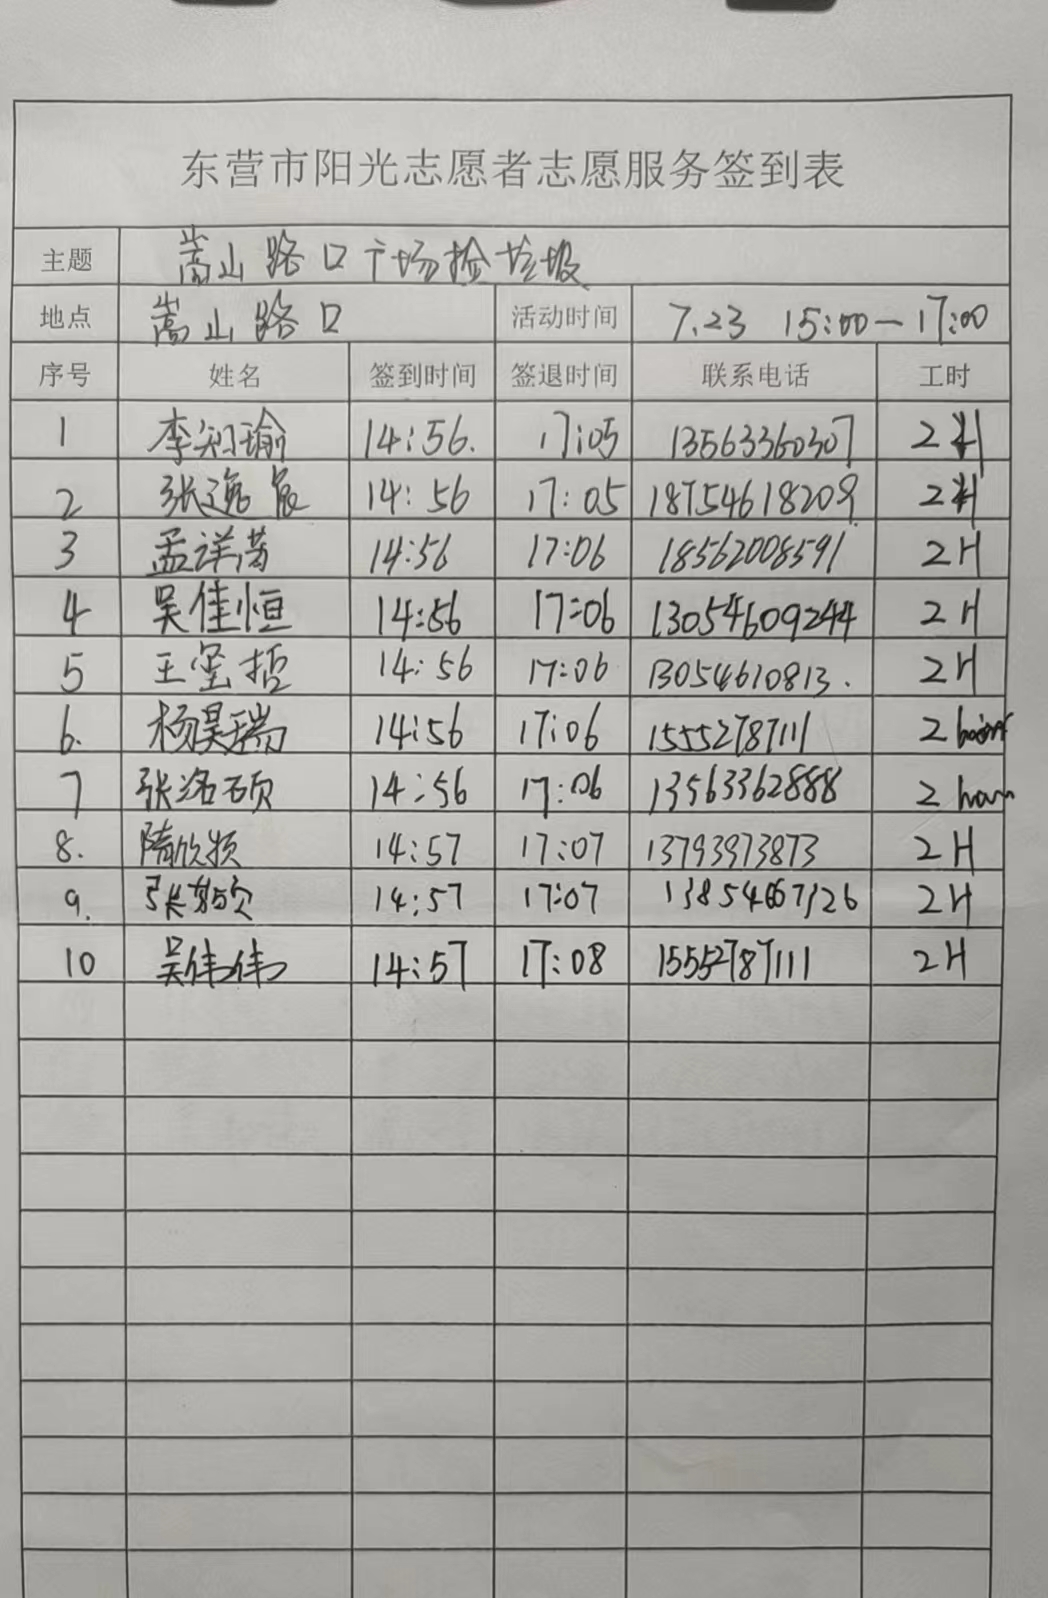 东营市阳光志愿者志愿服务签到表
主题 嵩山路口广场捡垃圾
地点 嵩山路口 活动时间 7.23 15:00—17:00
序号 姓名 签到时间 签退时间 联系电话 工时
1 李知瑜 14:56. 17:05 13563360307 2H
2 张逸宸 14:56 17:05 18754618209 2H
3 孟祥芸 14:56 17:06 18562008591 2H
4 吴佳恒 14:56 17:06 13054609244 2H
5 王玺哲 14:56 17:06 13054610813. 2H
6. 杨昊瑞 14:56 17:06 15552787111 2 hour
7 张洺硕 14:56 17:06 13563362888 2 hour
8. 隋欣颖 14:57 17:07 13793973873 2H
9. 张 14:57 17:07 2H
10 吴伟伟 14:57 17:08 15552787111 2H